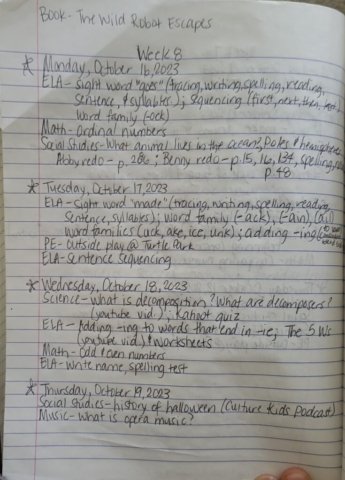 Book- The Wild Robot Escapes
Week 8
* Monday, October 16, 2023
ELA- Sight word "goes" (tracing, writing, spelling, reading,
Sentence, & syllables); Sequencing (first, next, then, last)
Word family (-ock)
Math- Ordinal numbers
Social Studies- What animal lives in the oceans, Poles & hemispheres
Abby redo- p. 206; Benny redo- p. 15, 16, 134, spelling,
p. 48
* Tuesday, October 17, 2023
ELA- Sight word "made" (tracing, writing, spelling, reading,
Sentence, syllables); word family (-ack), (-ain), (ail)
Word families (uck, ake, ice, unk); adding -ing (to
PE- Outside play @ Turtle Park
ELA- Sentence Sequencing
* Wednesday, October 18, 2023
Science- What is decomposition? What are decomposers?
(youtube vid.); Kahoot quiz
ELA- Adding -ing to words that end in -ie; The 5 Ws
(youtube vid.) & worksheets
Math- Odd & even numbers
ELA- Write name, spelling test
* Thursday, October 19, 2023
Social Studies- history of halloween (Culture Kids podcast)
Music- What is opera music?